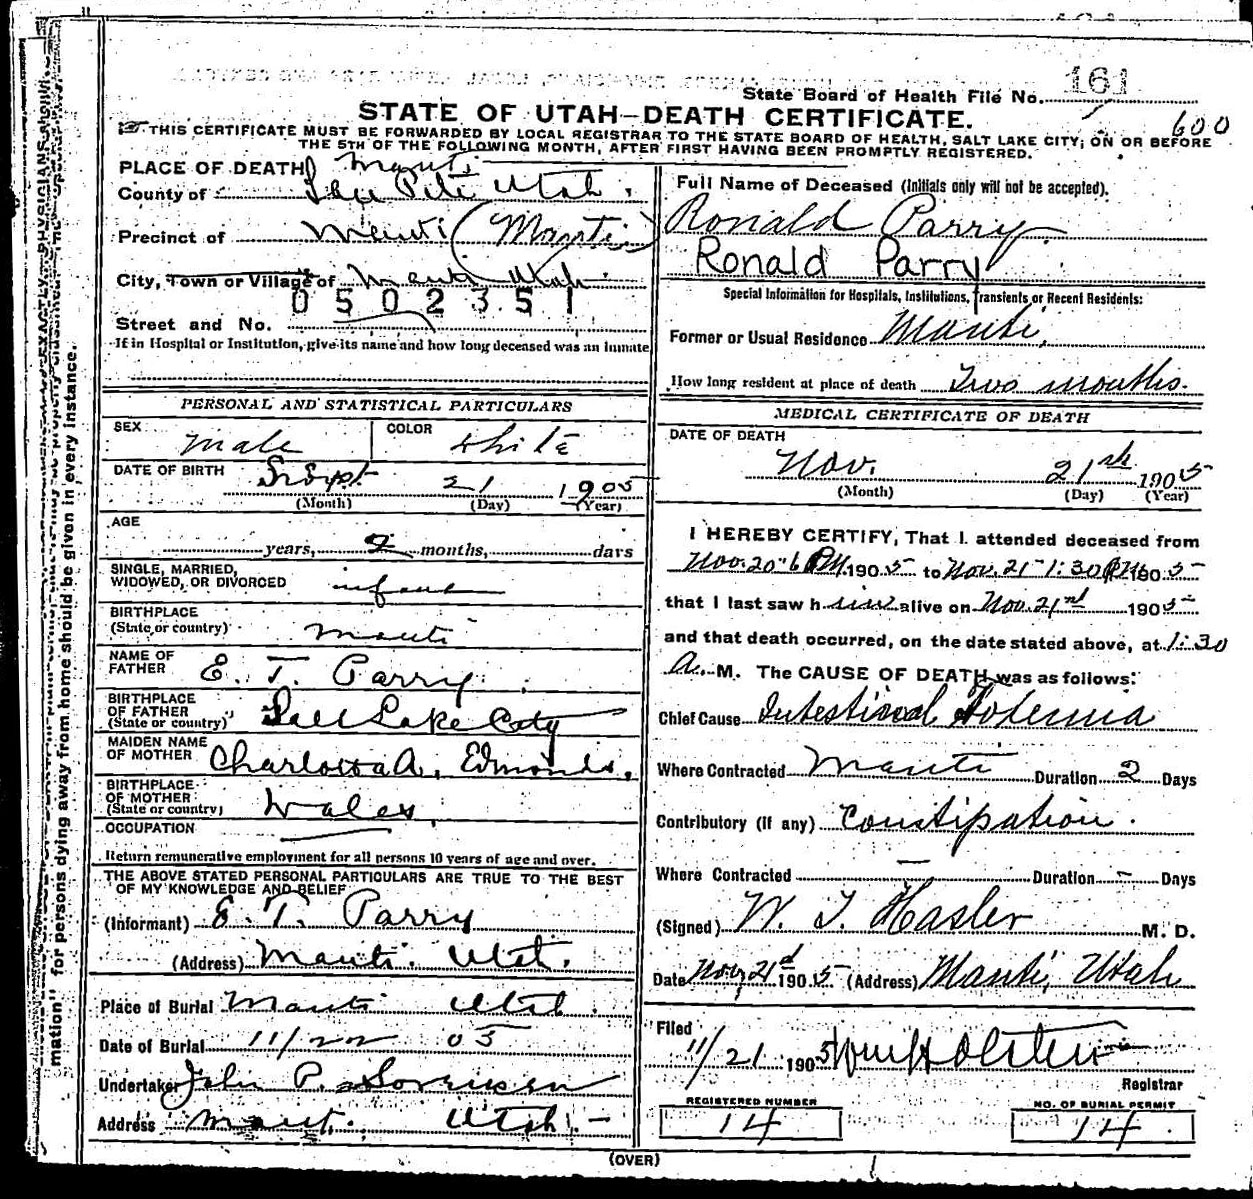 State Board of Health File No. 161
STATE OF UTAH—DEATH CERTIFICATE.
600
THIS CERTIFICATE MUST BE FORWARDED BY LOCAL REGISTRAR TO THE STATE BOARD OF HEALTH, SALT LAKE CITY, ON OR BEFORE
THE 5TH OF THE FOLLOWING MONTH, AFTER FIRST HAVING BEEN PROMPTLY REGISTERED.
PLACE OF DEATH Manti
County of San Pete Utah.
Precinct of Manti (Manti)
City, Town or Village of Manti Utah.
0502351
Street and No.
If in Hospital or Institution, give its name and how long deceased was an inmate
PERSONAL AND STATISTICAL PARTICULARS
SEX male COLOR white
DATE OF BIRTH Sept 21 1905
(Month) (Day) (Year)
AGE
years, 2 months, days
SINGLE, MARRIED,
WIDOWED, OR DIVORCED infant
BIRTHPLACE
(State or country) Manti
NAME OF
FATHER E. T. Parry
BIRTHPLACE
OF FATHER
(State or country) Salt Lake City
MAIDEN NAME
OF MOTHER Charlotta A. Edmonds.
BIRTHPLACE
OF MOTHER
(State or country) Wales.
OCCUPATION
Return remunerative employment for all persons 10 years of age and over.
THE ABOVE STATED PERSONAL PARTICULARS ARE TRUE TO THE BEST
OF MY KNOWLEDGE AND BELIEF
(Informant) E. T. Parry
(Address) Manti. Utah.
Place of Burial Manti Utah.
Date of Burial 11/22 05
Undertaker John P. Sorensen
Address Manti. Utah.
Full Name of Deceased (Initials only will not be accepted).
Ronald Parry.
Ronald Parry
Special Information for Hospitals, Institutions, Transients or Recent Residents:
Former or Usual Residence Manti,
How long resident at place of death Two months.
MEDICAL CERTIFICATE OF DEATH
DATE OF DEATH
Nov. 21st 1905
(Month) (Day) (Year)
I HEREBY CERTIFY, That I attended deceased from
Nov. 20-6 PM 1905 to Nov. 21-1:30 1905
that I last saw h alive on Nov. 21 1905
and that death occurred, on the date stated above, at 1:30
A. M. The CAUSE OF DEATH was as follows:
Chief Cause Intestinal
Where Contracted Manti Duration 2 Days
Contributory (if any) Constipation.
Where Contracted — Duration - Days
(Signed) W. T. Hasler M. D.
Date Nov 21 1905. (Address) Manti, Utah
Filed 11/21 1905 Wm Holsten
Registrar
REGISTERED NUMBER
14
NO. OF BURIAL PERMIT
14
(OVER)
mation" for persons dying away from home should be given in every instance.